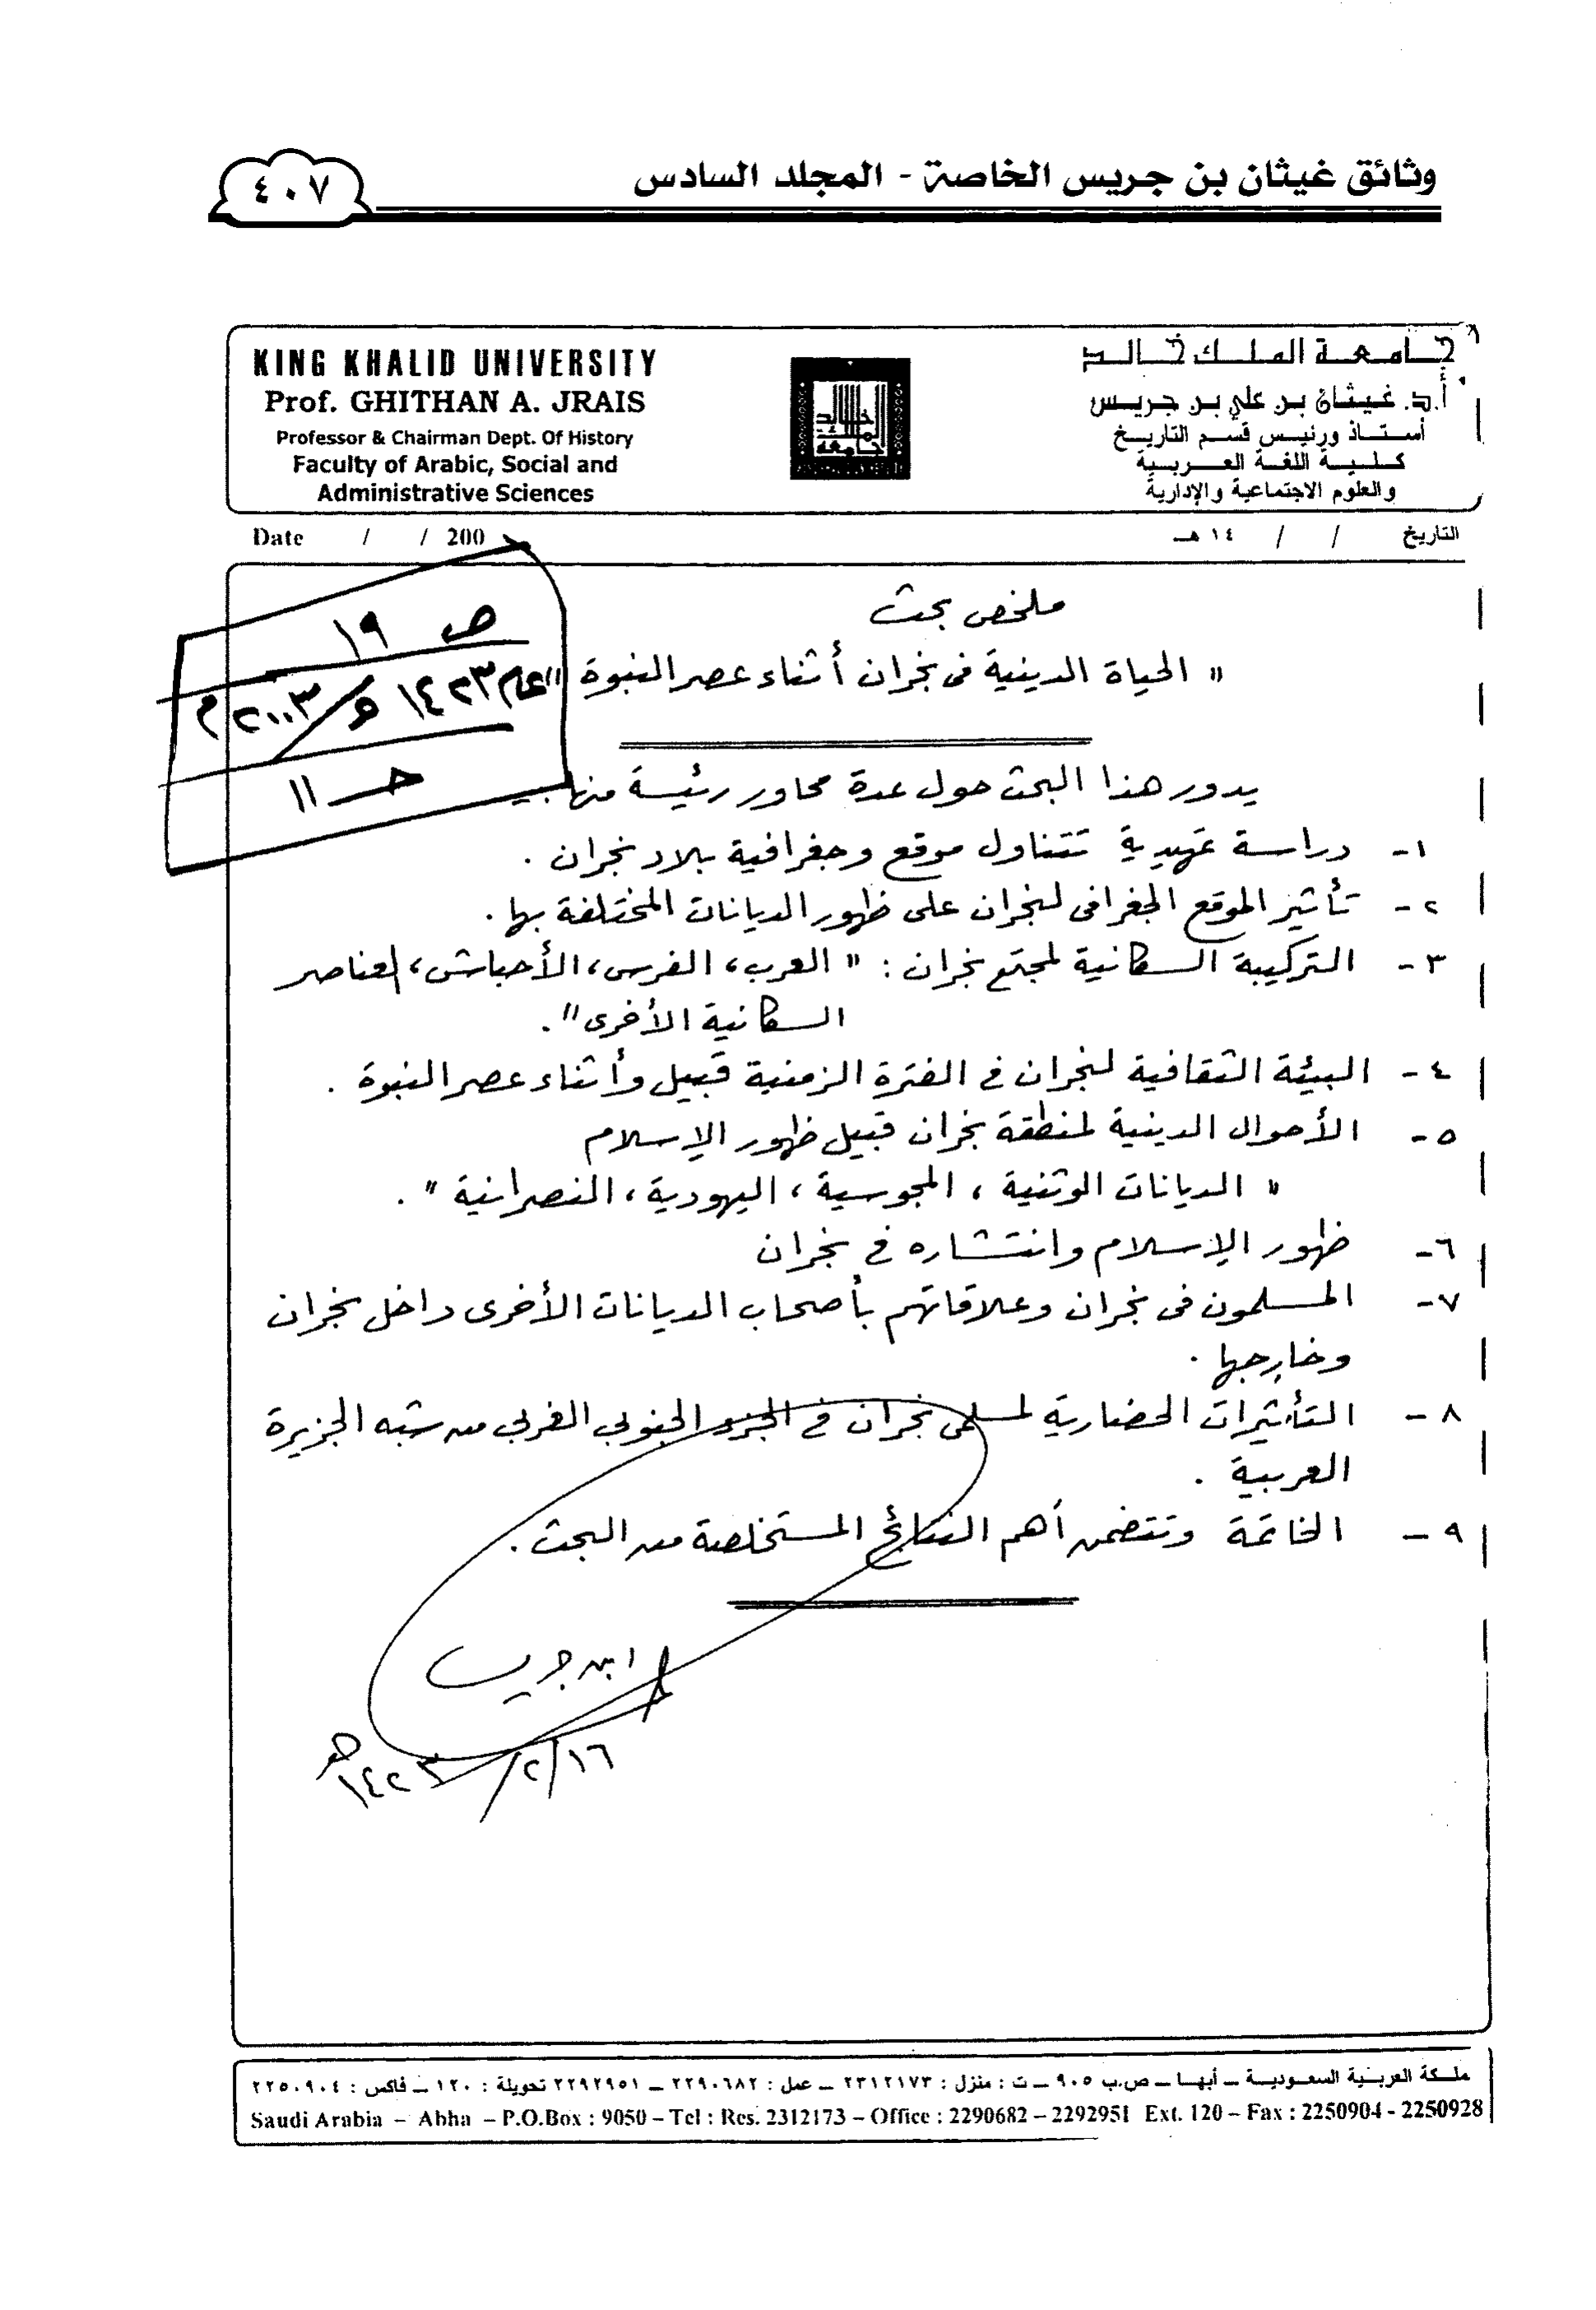 وثائق غيثان بن جريس الخاصة - المجلد السادس
٤٠٧
KING KHALID UNIVERSITY
Prof. GHITHAN A. JRAIS
Professor & Chairman Dept. Of History
Faculty of Arabic, Social and
Administrative Sciences
جامعة الملك خالد
أ.د. غيثان بن علي بن جريس
أستاذ ورئيس قسم التاريخ
كلية اللغة العربية
والعلوم الاجتماعية والإدارية
Date / / 200
التاريخ / / ١٤ هـ
ص ١٩
عام ١٤٢٣هـ/٢٠٠٣م
حـ ١١
ملخص بحث
" الحياة الدينية فى نجران أثناء عصر النبوة "
يدور هذا البحث حول عدة محاور رئيسة منها :
١- دراسة تمهيدية تتناول موقع وجغرافية بلاد نجران .
٢- تأثير الموقع الجغرافى لنجران على ظهور الديانات المختلفة بها .
٣- التركيبة السكانية لمجتمع نجران : " العرب، الفرس، الأحباش، العناصر
السكانية الأخرى" .
٤- البيئة الثقافية لنجران فى الفترة الزمنية قبيل وأثناء عصر النبوة .
٥- الأحوال الدينية لمنطقة نجران قبيل ظهور الإسلام
" الديانات الوثنية ، المجوسية ، اليهودية ، النصرانية " .
٦- ظهور الإسلام وانتشاره فى نجران
٧- المسلمون فى نجران وعلاقاتهم بأصحاب الديانات الأخرى داخل نجران
وخارجها .
٨- التأثيرات الحضارية لمسلمى نجران فى الجزء الجنوبي الغربي من شبه الجزيرة
العربية .
٩- الخاتمة وتتضمن أهم النتائج المستخلصة من البحث .
ابن جريس
١٦/٢/١٤٢٣هـ
ملكة العربية السعودية – أبها – ص.ب ٩٠٥ – ت : منزل : ٢٣١٢١٧٣ – عمل : ٢٢٩٠٦٨٢ – ٢٢٩٢٩٥١ تحويلة : ١٢٠ – فاكس : ٢٢٥٠٩٠٤
Saudi Arabia – Abha – P.O.Box : 9050 – Tel : Res. 2312173 – Office : 2290682 – 2292951 Ext. 120 – Fax : 2250904 - 2250928